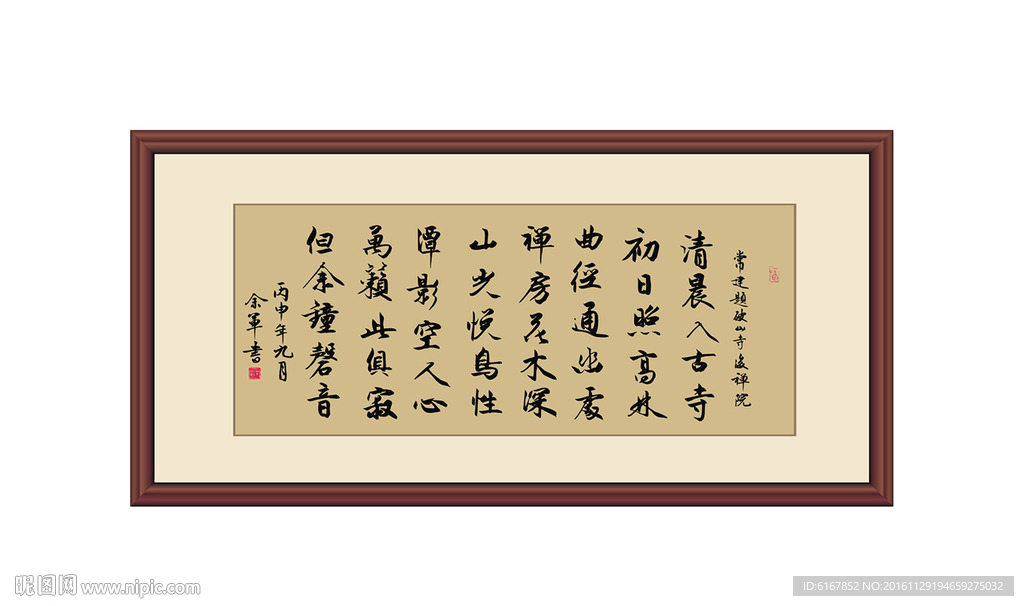 常建題破山寺後禪院
清晨入古寺
初日照高林
曲徑通幽處
禅房花木深
山光悦鳥性
潭影空人心
萬籟此俱寂
但余鐘磬音
丙申年九月
余軍書
昵图网 www.nipic.com
ID:6167852 NO:20161129194659275032